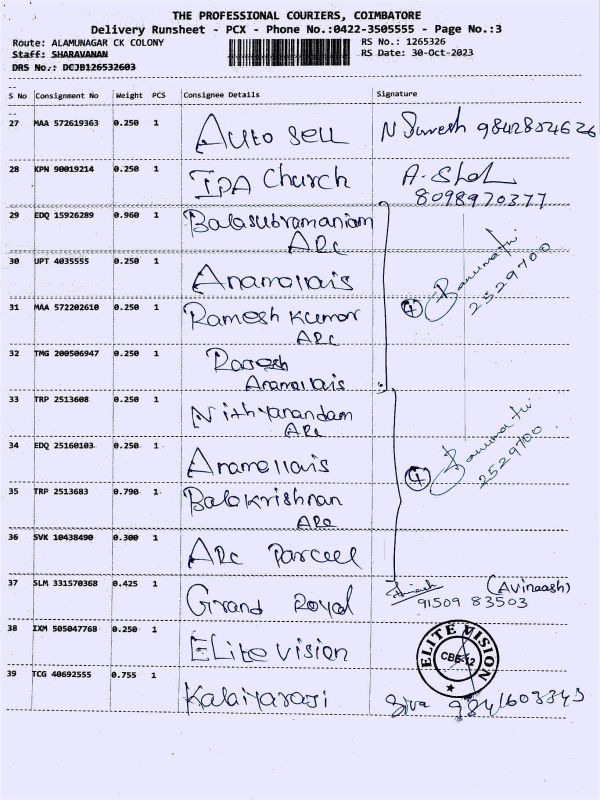 THE PROFESSIONAL COURIERS, COIMBATORE
Delivery Runsheet - PCX - Phone No.:0422-3505555 - Page No.:3
Route: ALAMUNAGAR CK COLONY
RS No.: 1265326
Staff: SHARAVANAN
RS Date: 30-Oct-2023
DRS No.: DCJB126532603
S No Consignment No Weight PCS Consignee Details Signature
27 MAA 572619363 0.250 1 Auto Sell N Suresh 9842854626
28 KPN 90019214 0.250 1 IPA Church A.
8098970377
29 EDQ 15926289 0.960 1 Balasubramaniam
ARC
30 UPT 4035555 0.250 1 Anamallais
4 Banumathi
2529700
31 MAA 572202610 0.250 1 Ramesh Kumar
ARC
32 TMG 200506947 0.250 1
Anamallais
33 TRP 2513608 0.250 1 Nithyanandam
ARC
34 EDQ 25160103 0.250 1 Anamallais
4 Banumathi
2529700
35 TRP 2513683 0.790 1 Balakrishnan
ARC
36 SVK 10438490 0.300 1 ARC Parcel
37 SLM 331570368 0.425 1 Grand Royal (Avinaash)
91509 83503
38 IXM 505047768 0.250 1 Elite vision
ELITE VISION
CBE-12
39 TCG 40692555 0.755 1 Kalaiyarasi Siva